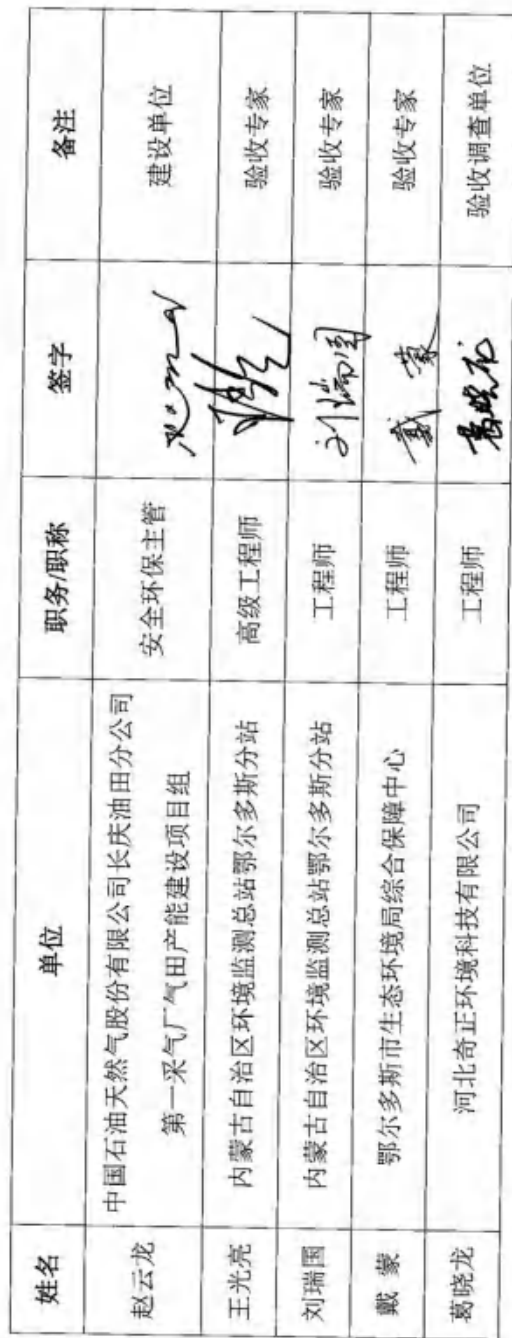 姓名 单位 职务/职称 签字 备注
赵云龙 中国石油天然气股份有限公司长庆油田分公司 安全环保主管 建设单位
第一采气厂气田产能建设项目组
王光亮 内蒙古自治区环境监测总站鄂尔多斯分站 高级工程师 验收专家
刘瑞国 内蒙古自治区环境监测总站鄂尔多斯分站 工程师 刘瑞国 验收专家
戴 蒙 鄂尔多斯市生态环境局综合保障中心 工程师 戴 蒙 验收专家
葛晓龙 河北奇正环境科技有限公司 工程师 葛晓龙 验收调查单位